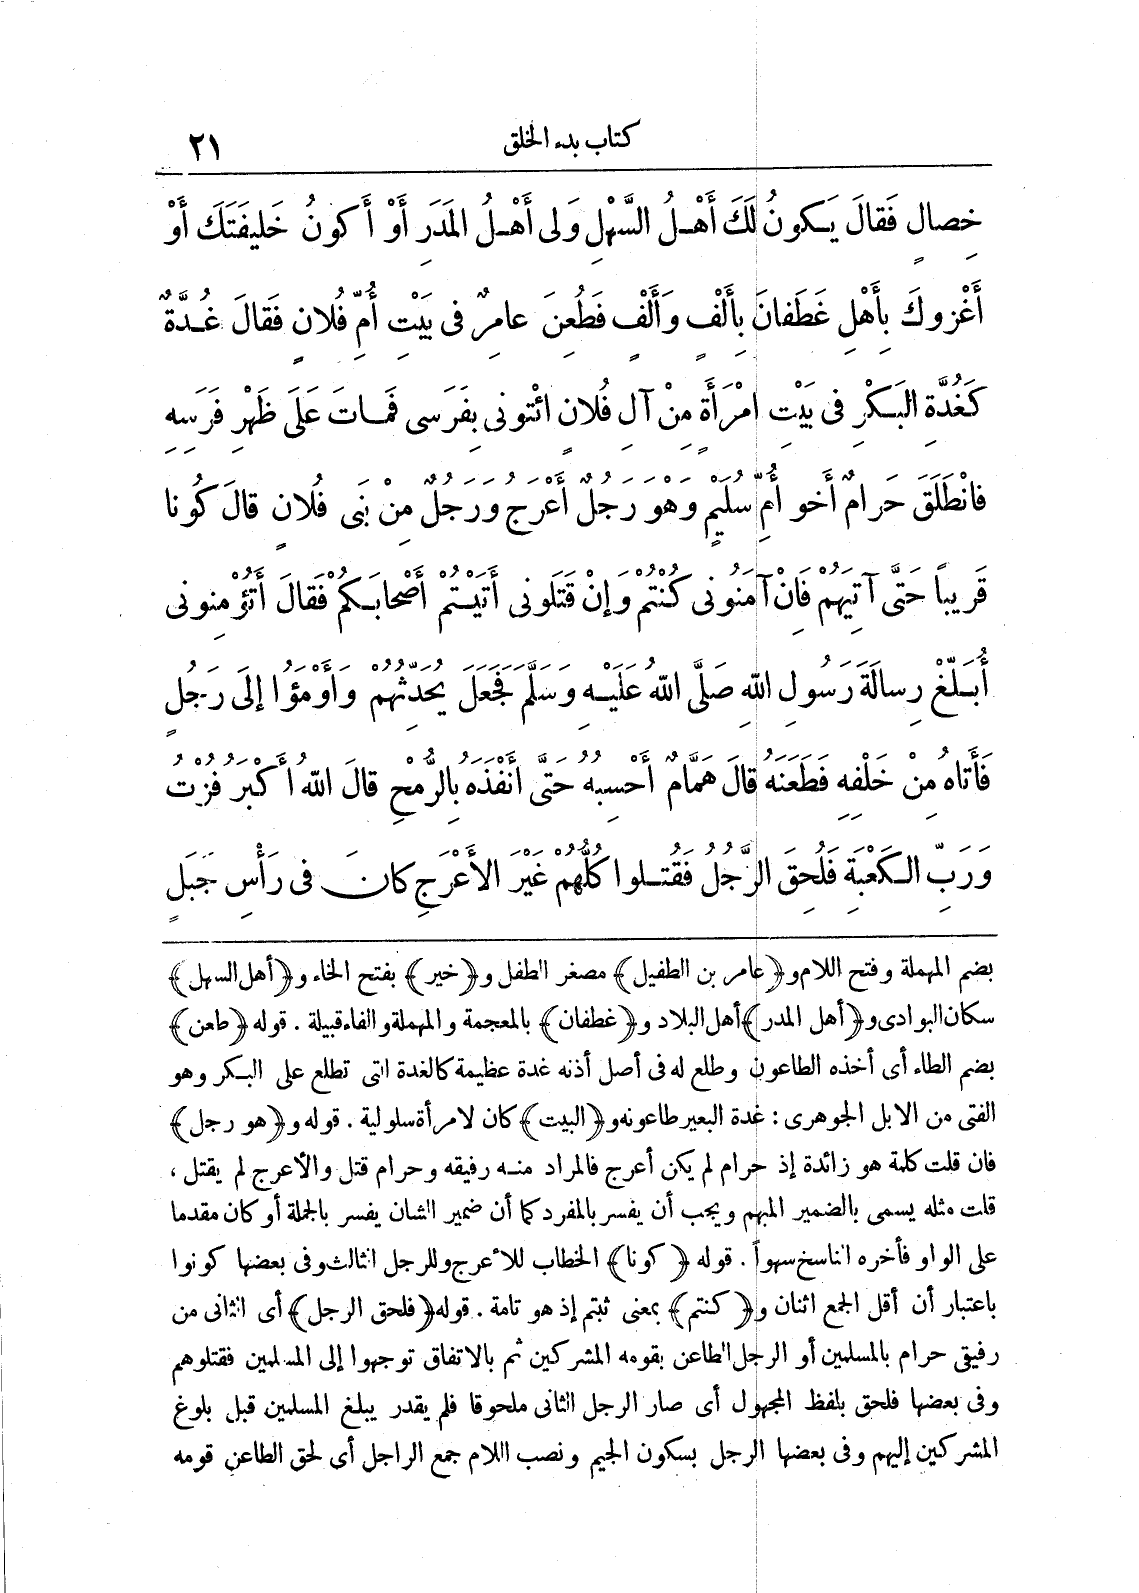 كتاب بدء الخلق
٢١
خِصالٍ فَقالَ يَكونُ لَكَ أَهْلُ السَّهْلِ وَلى أَهْلُ المَدَرِ أَوْ أَكونُ خَليفَتَكَ أَوْ
أَغْزوكَ بِأَهْلِ غَطَفانَ بِأَلْفٍ وَأَلْفٍ فَطُعِنَ عامِرٌ فى بَيْتِ أُمِّ فُلانٍ فَقالَ غُدَّةٌ
كَغُدَّةِ البَكْرِ فى بَيْتِ امْرَأَةٍ مِنْ آلِ فُلانٍ ائْتونى بِفَرَسى فَماتَ عَلَى ظَهْرِ فَرَسِهِ
فانْطَلَقَ حَرامٌ أَخو أُمِّ سُلَيْمٍ وَهْوَ رَجُلٌ أَعْرَجُ وَرَجُلٌ مِنْ بَنى فُلانٍ قالَ كُونا
قَريباً حَتَّى آتِيَهُمْ فَانْ آمَنُونى كُنْتُمْ وَإنْ قَتَلونى أَتَيْتُمْ أَصْحابَكُمْ فَقالَ أَتُؤْمِنونى
أُبَلِّغْ رِسالَةَ رَسُولِ اللهِ صَلَّى اللهُ عَلَيْهِ وَسَلَّمَ فَجَعَلَ يُحَدِّثُهُمْ وَأَوْمَؤُا إلَى رَجُلٍ
فَأَتاهُ مِنْ خَلْفِهِ فَطَعَنَهُ قالَ هَمَّامٌ أَحْسِبُهُ حَتَّى أَنْفَذَهُ بِالرُّمْحِ قالَ اللهُ أَكْبَرُ فُزْتُ
وَرَبِّ الكَعْبَةِ فَلُحِقَ الرَّجُلُ فَقُتِلوا كُلُّهُمْ غَيْرَ الأَعْرَجِ كانَ فى رَأْسِ جَبَلٍ
بضم المهملة وفتح اللام و﴿عامر بن الطفيل﴾ مصغر الطفل و﴿خير﴾ بفتح الخاء و﴿أهل السهل﴾
سكان البوادى و﴿أهل المدر﴾ أهل البلاد و﴿غطفان﴾ بالمعجمة والمهملة والفاء قبيلة . قوله ﴿طعن﴾
بضم الطاء أى أخذه الطاعون وطلع له فى أصل أذنه غدة عظيمة كالغدة التى تطلع على البكر وهو
الفتى من الابل الجوهرى : غدة البعير طاعونه و﴿البيت﴾ كان لامرأة سلولية . قوله و﴿هو رجل﴾
فان قلت كلمة هو زائدة إذ حرام لم يكن أعرج فالمراد منه رفيقه وحرام قتل والأعرج لم يقتل ،
قلت مثله يسمى بالضمير المبهم ويجب أن يفسر بالمفرد كما أن ضمير الشان يفسر بالجملة أو كان مقدما
على الواو فأخره الناسخ سهواً . قوله ﴿كونا﴾ الخطاب للأعرج وللرجل الثالث وفى بعضها كونوا
باعتبار أن أقل الجمع اثنان و﴿كنتم﴾ بمعنى ثبتم إذ هو تامة . قوله ﴿فلحق الرجل﴾ أى الثانى من
رفيقى حرام بالمسلمين أو الرجل الطاعن بقومه المشركين ثم بالاتفاق توجهوا إلى المسلمين فقتلوهم
وفى بعضها فلحق بلفظ المجهول أى صار الرجل الثانى ملحوقا فلم يقدر يبلغ المسلمين قبل بلوغ
المشركين إليهم وفى بعضها الرجل بسكون الجيم ونصب اللام جمع الراجل أى لحق الطاعن قومه